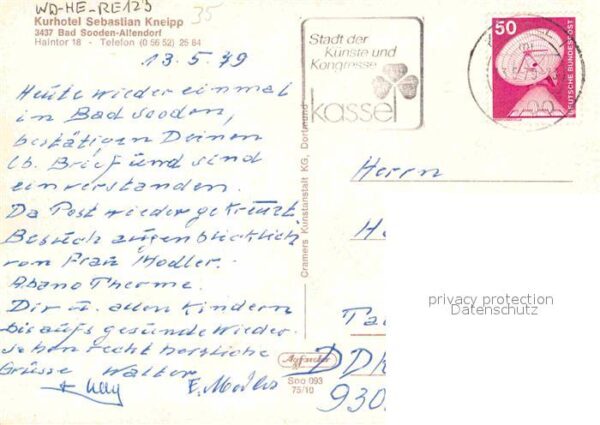 WD-HE-RE123
35
Kurhotel Sebastian Kneipp
3437 Bad Sooden-Allendorf
Haintor 18 - Telefon (0 56 52) 25 84
13.5.79
Heute wieder einmal
in Bad Sooden,
bestätigen Deinen
lb. Brief und sind
einverstanden.
Da Post wieder gekreuzt.
Besuch augenblicklich
von Frau Modler.
Abano Therme.
Dir u. allen Kindern
bis aufs gesunde Wieder-
sehen recht herzliche
Grüsse Walter
E. Modler
Stadt der
Künste und
Kongresse
kassel
50
DEUTSCHE BUNDESPOST
Cramers Kunstanstalt KG, Dortmund
Spo 093
75/10
Herrn
DDR
930
privacy protection
Datenschutz